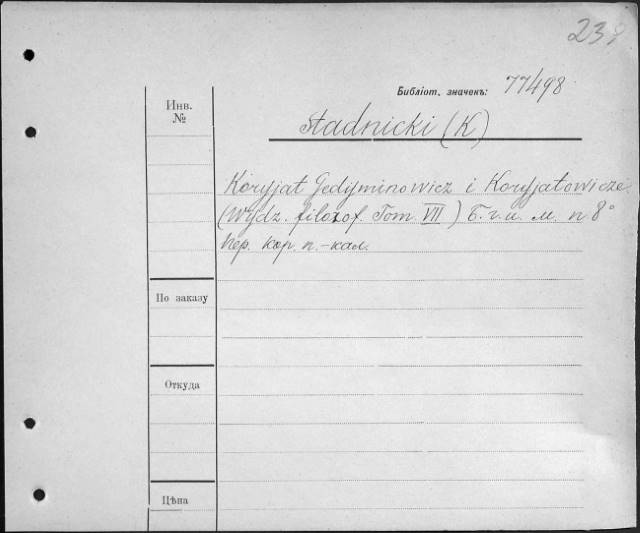 23
Библіот. значекъ: 77498
Инв.
№
Stadnicki (K)
Koryjat Gedyminowicz i Koryjatowicze.
(Wydz. filozof. Tom. VII) Б. г. и. м. п 8°
Пер. кор. п.-кал.
По заказу
Откуда
Цѣна